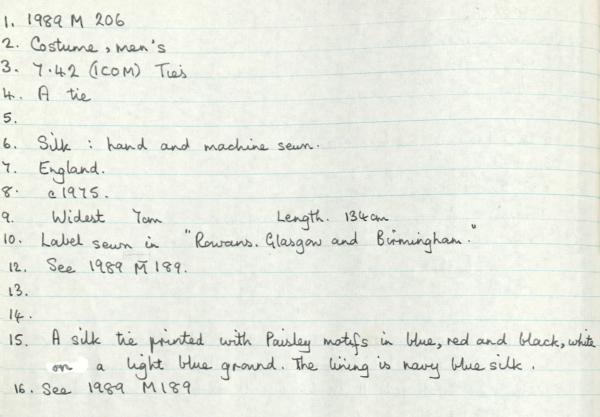 1. 1989 M 206
2. Costume, men's
3. 7.42 (ICOM) Ties
4. A tie
5.
6. Silk : hand and machine sewn.
7. England.
8. c 1975.
9. Widest 7cm Length. 134cm
10. Label sewn in "Rowans. Glasgow and Birmingham."
12. See 1989 M 189.
13.
14.
15. A silk tie printed with Paisley motifs in blue, red and black, white
on a light blue ground. The lining is navy blue silk.
16. See 1989 M189